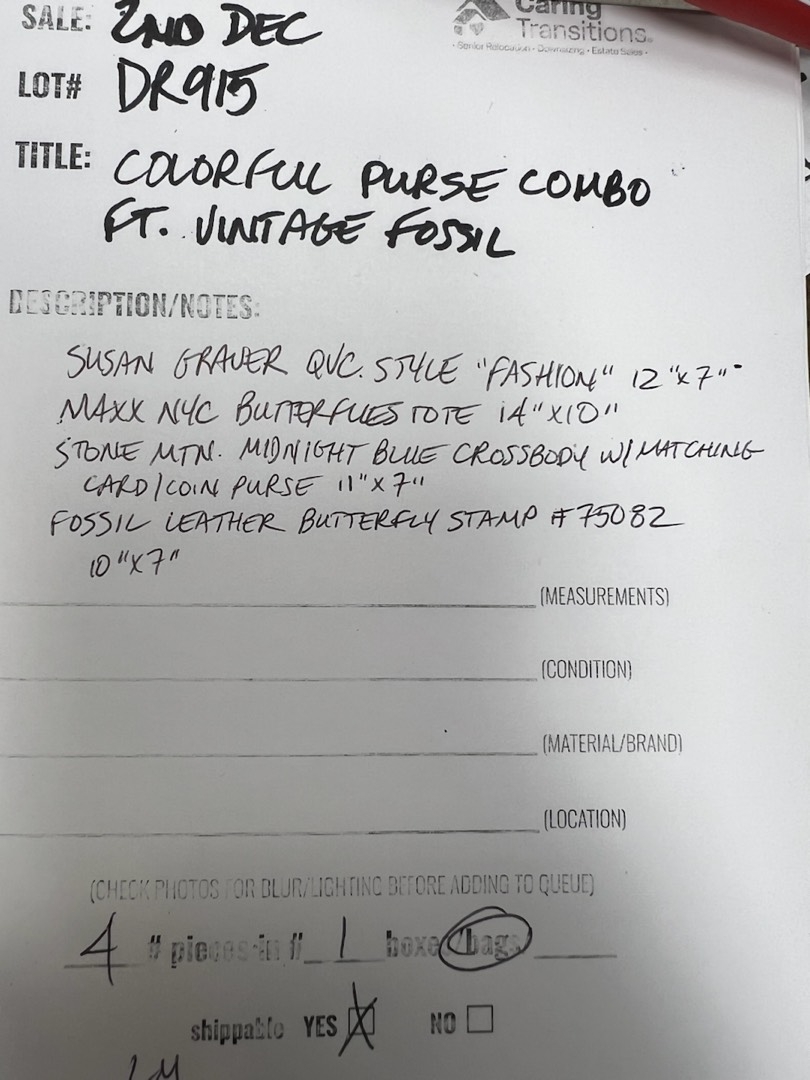 SALE: 2ND DEC
Caring
Transitions.
• Senior Relocation • Downsizing • Estate Sales •
LOT# DR915
TITLE: COLORFUL PURSE COMBO
FT. VINTAGE FOSSIL
DESCRIPTION/NOTES:
SUSAN GRAVER QVC. STYLE "FASHION" 12"x7"
MAXX NYC BUTTERFLIES TOTE 14"X10"
STONE MTN. MIDNIGHT BLUE CROSSBODY W/MATCHING
CARD/COIN PURSE 11"X7"
FOSSIL LEATHER BUTTERFLY STAMP #75082
10"X7"
(MEASUREMENTS)
(CONDITION)
(MATERIAL/BRAND)
(LOCATION)
(CHECK PHOTOS FOR BLUR/LIGHTING BEFORE ADDING TO QUEUE)
4 # pieces in # 1 boxes/bags
shippable YES NO